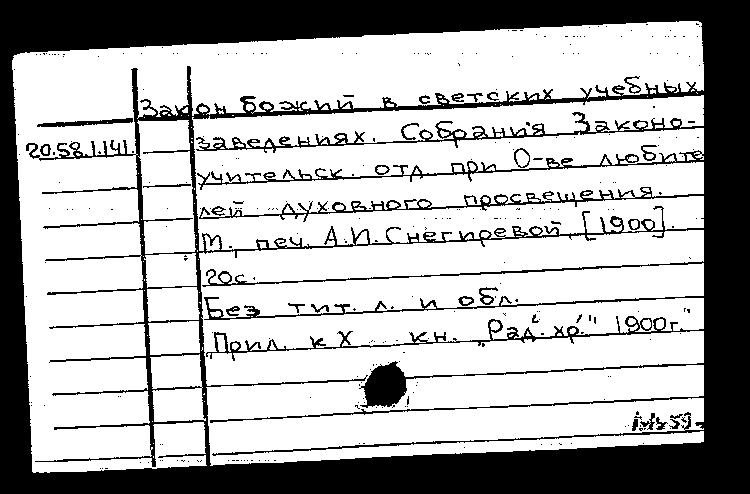 Закон божий в светских учебных
20.58.1.141. заведениях. Собрания Законо-
учительск. отд при О-ве любите
лей духовного просвещения.
М., печ. А.И.Снегиревой, [1900].
20с.
Без тит. л. и обл.
"Прил. к X кн. „Рад. хр." 1900г."